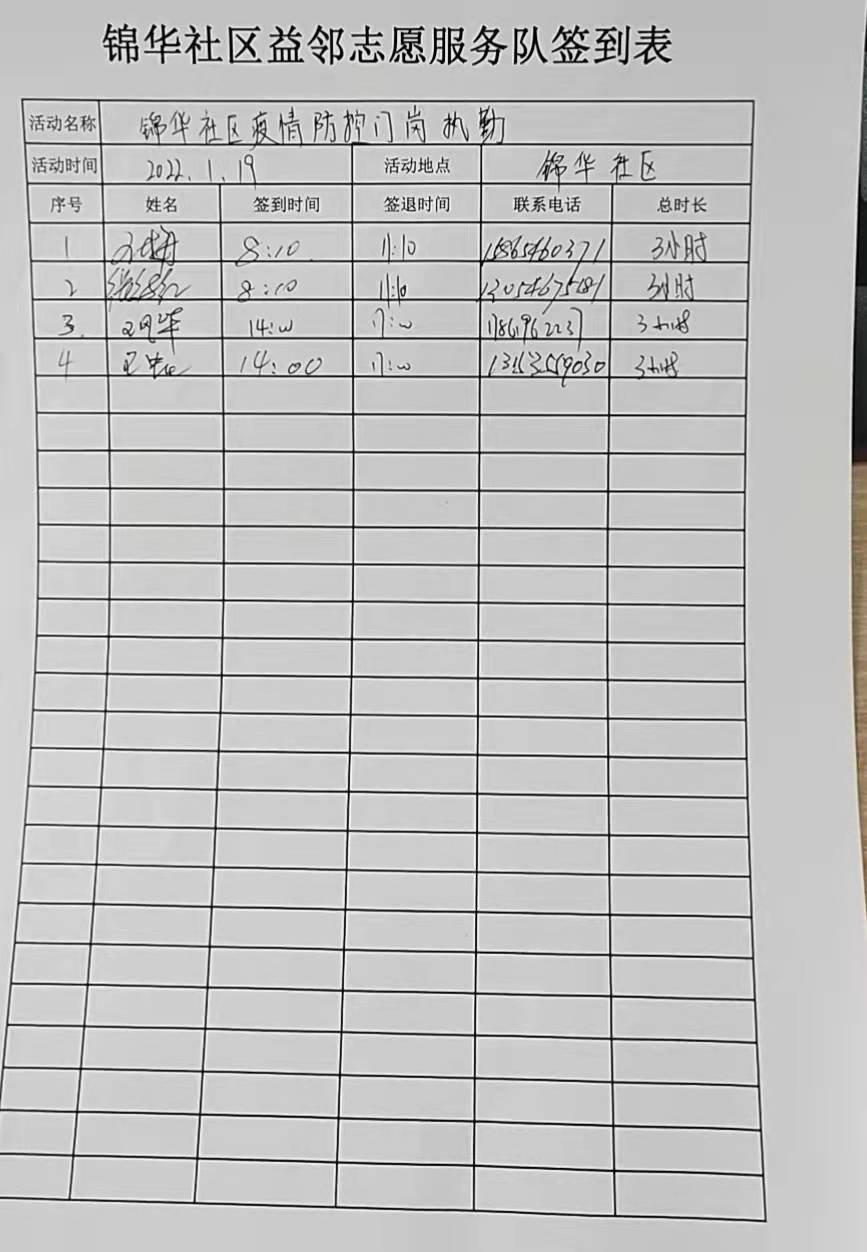 锦华社区益邻志愿服务队签到表
活动名称 锦华社区疫情防控门岗执勤
活动时间 2022.1.19 活动地点 锦华社区
序号 姓名 签到时间 签退时间 联系电话 总时长
1 8:10 11:10 15865460371 3小时
2 8:10 11:10 3小时
3. 14:00 17:00 3小时
4 14:00 17:00 3小时